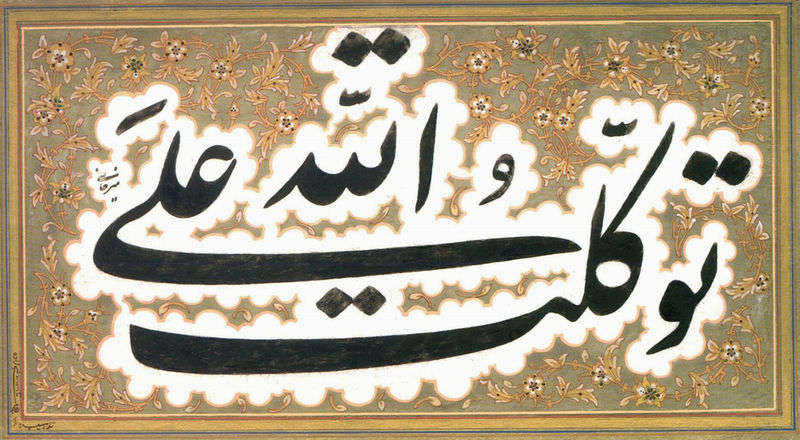 توكّلتُ علَى اللّه